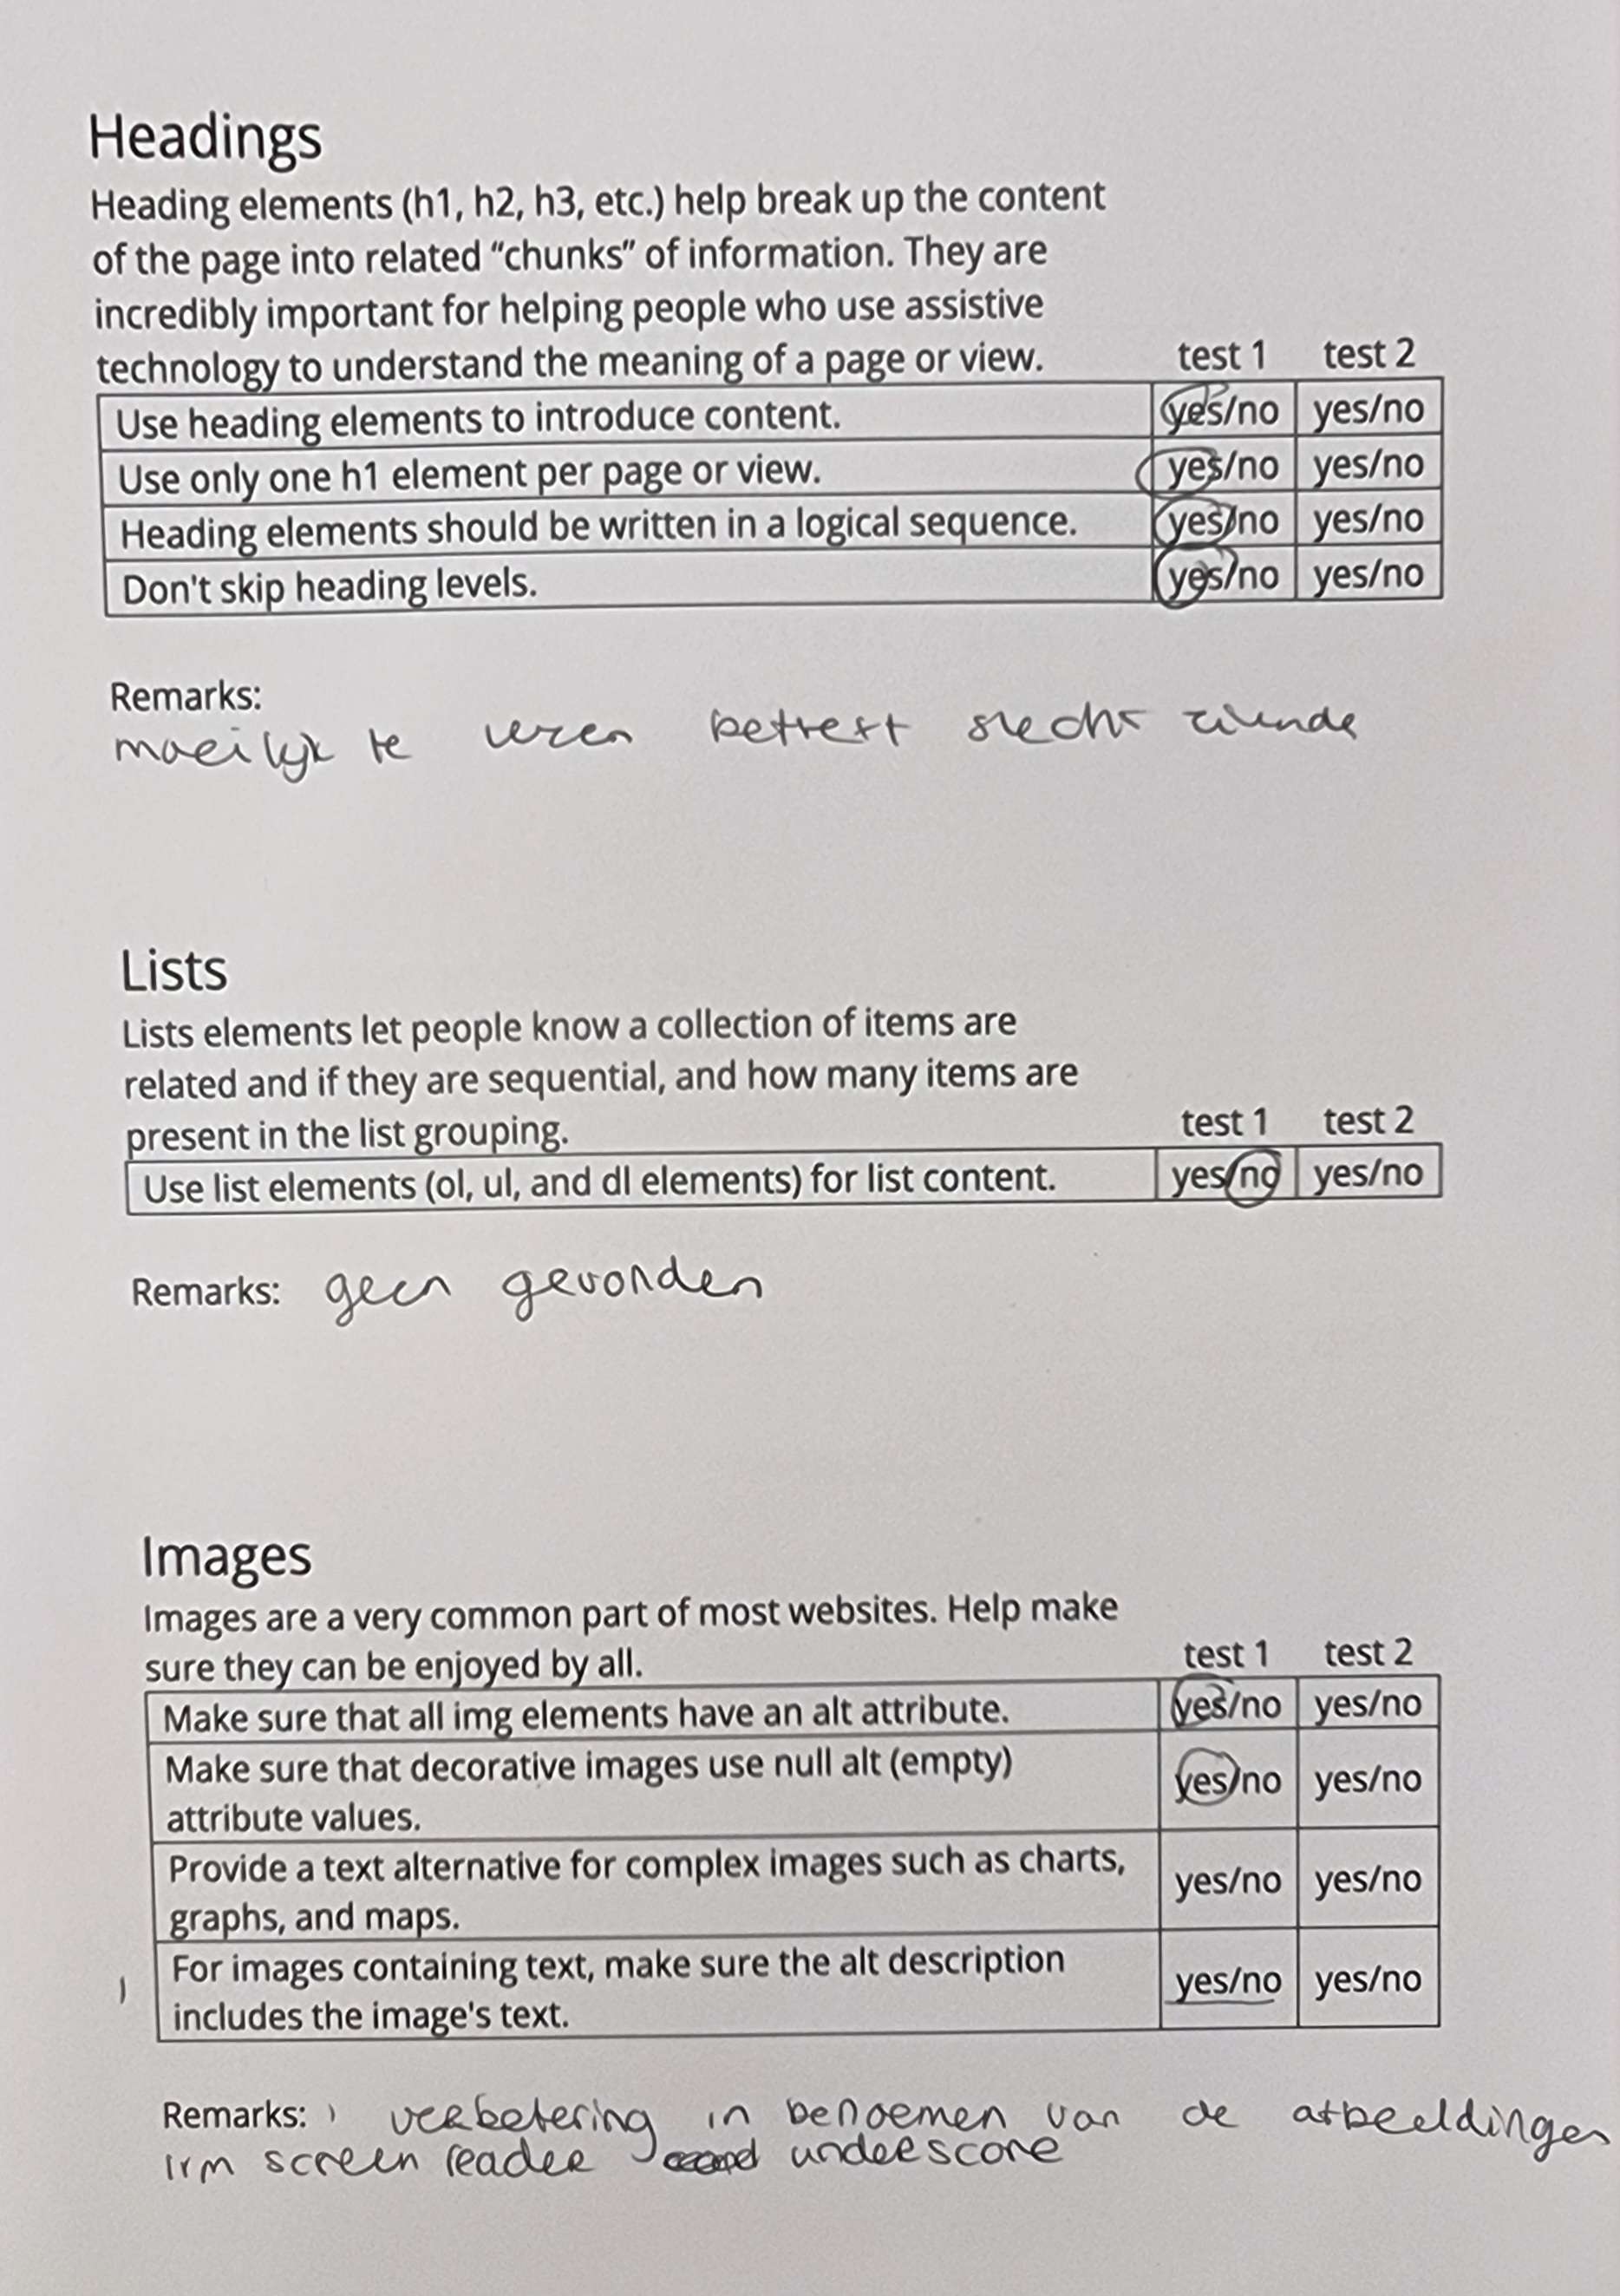 Headings
Heading elements (h1, h2, h3, etc.) help break up the content
of the page into related “chunks” of information. They are
incredibly important for helping people who use assistive
technology to understand the meaning of a page or view. test 1 test 2
Use heading elements to introduce content. yes/no yes/no
Use only one h1 element per page or view. yes/no yes/no
Heading elements should be written in a logical sequence. yes/no yes/no
Don't skip heading levels. yes/no yes/no
Remarks:
moeilijk te lezen betreft slecht ziende
Lists
Lists elements let people know a collection of items are
related and if they are sequential, and how many items are
present in the list grouping. test 1 test 2
Use list elements (ol, ul, and dl elements) for list content. yes/no yes/no
Remarks: geen gevonden
Images
Images are a very common part of most websites. Help make
sure they can be enjoyed by all. test 1 test 2
Make sure that all img elements have an alt attribute. yes/no yes/no
Make sure that decorative images use null alt (empty)
attribute values. yes/no yes/no
Provide a text alternative for complex images such as charts,
graphs, and maps. yes/no yes/no
For images containing text, make sure the alt description
includes the image's text. yes/no yes/no
Remarks: verbetering in benoemen van de afbeeldingen
ivm screen reader underscore